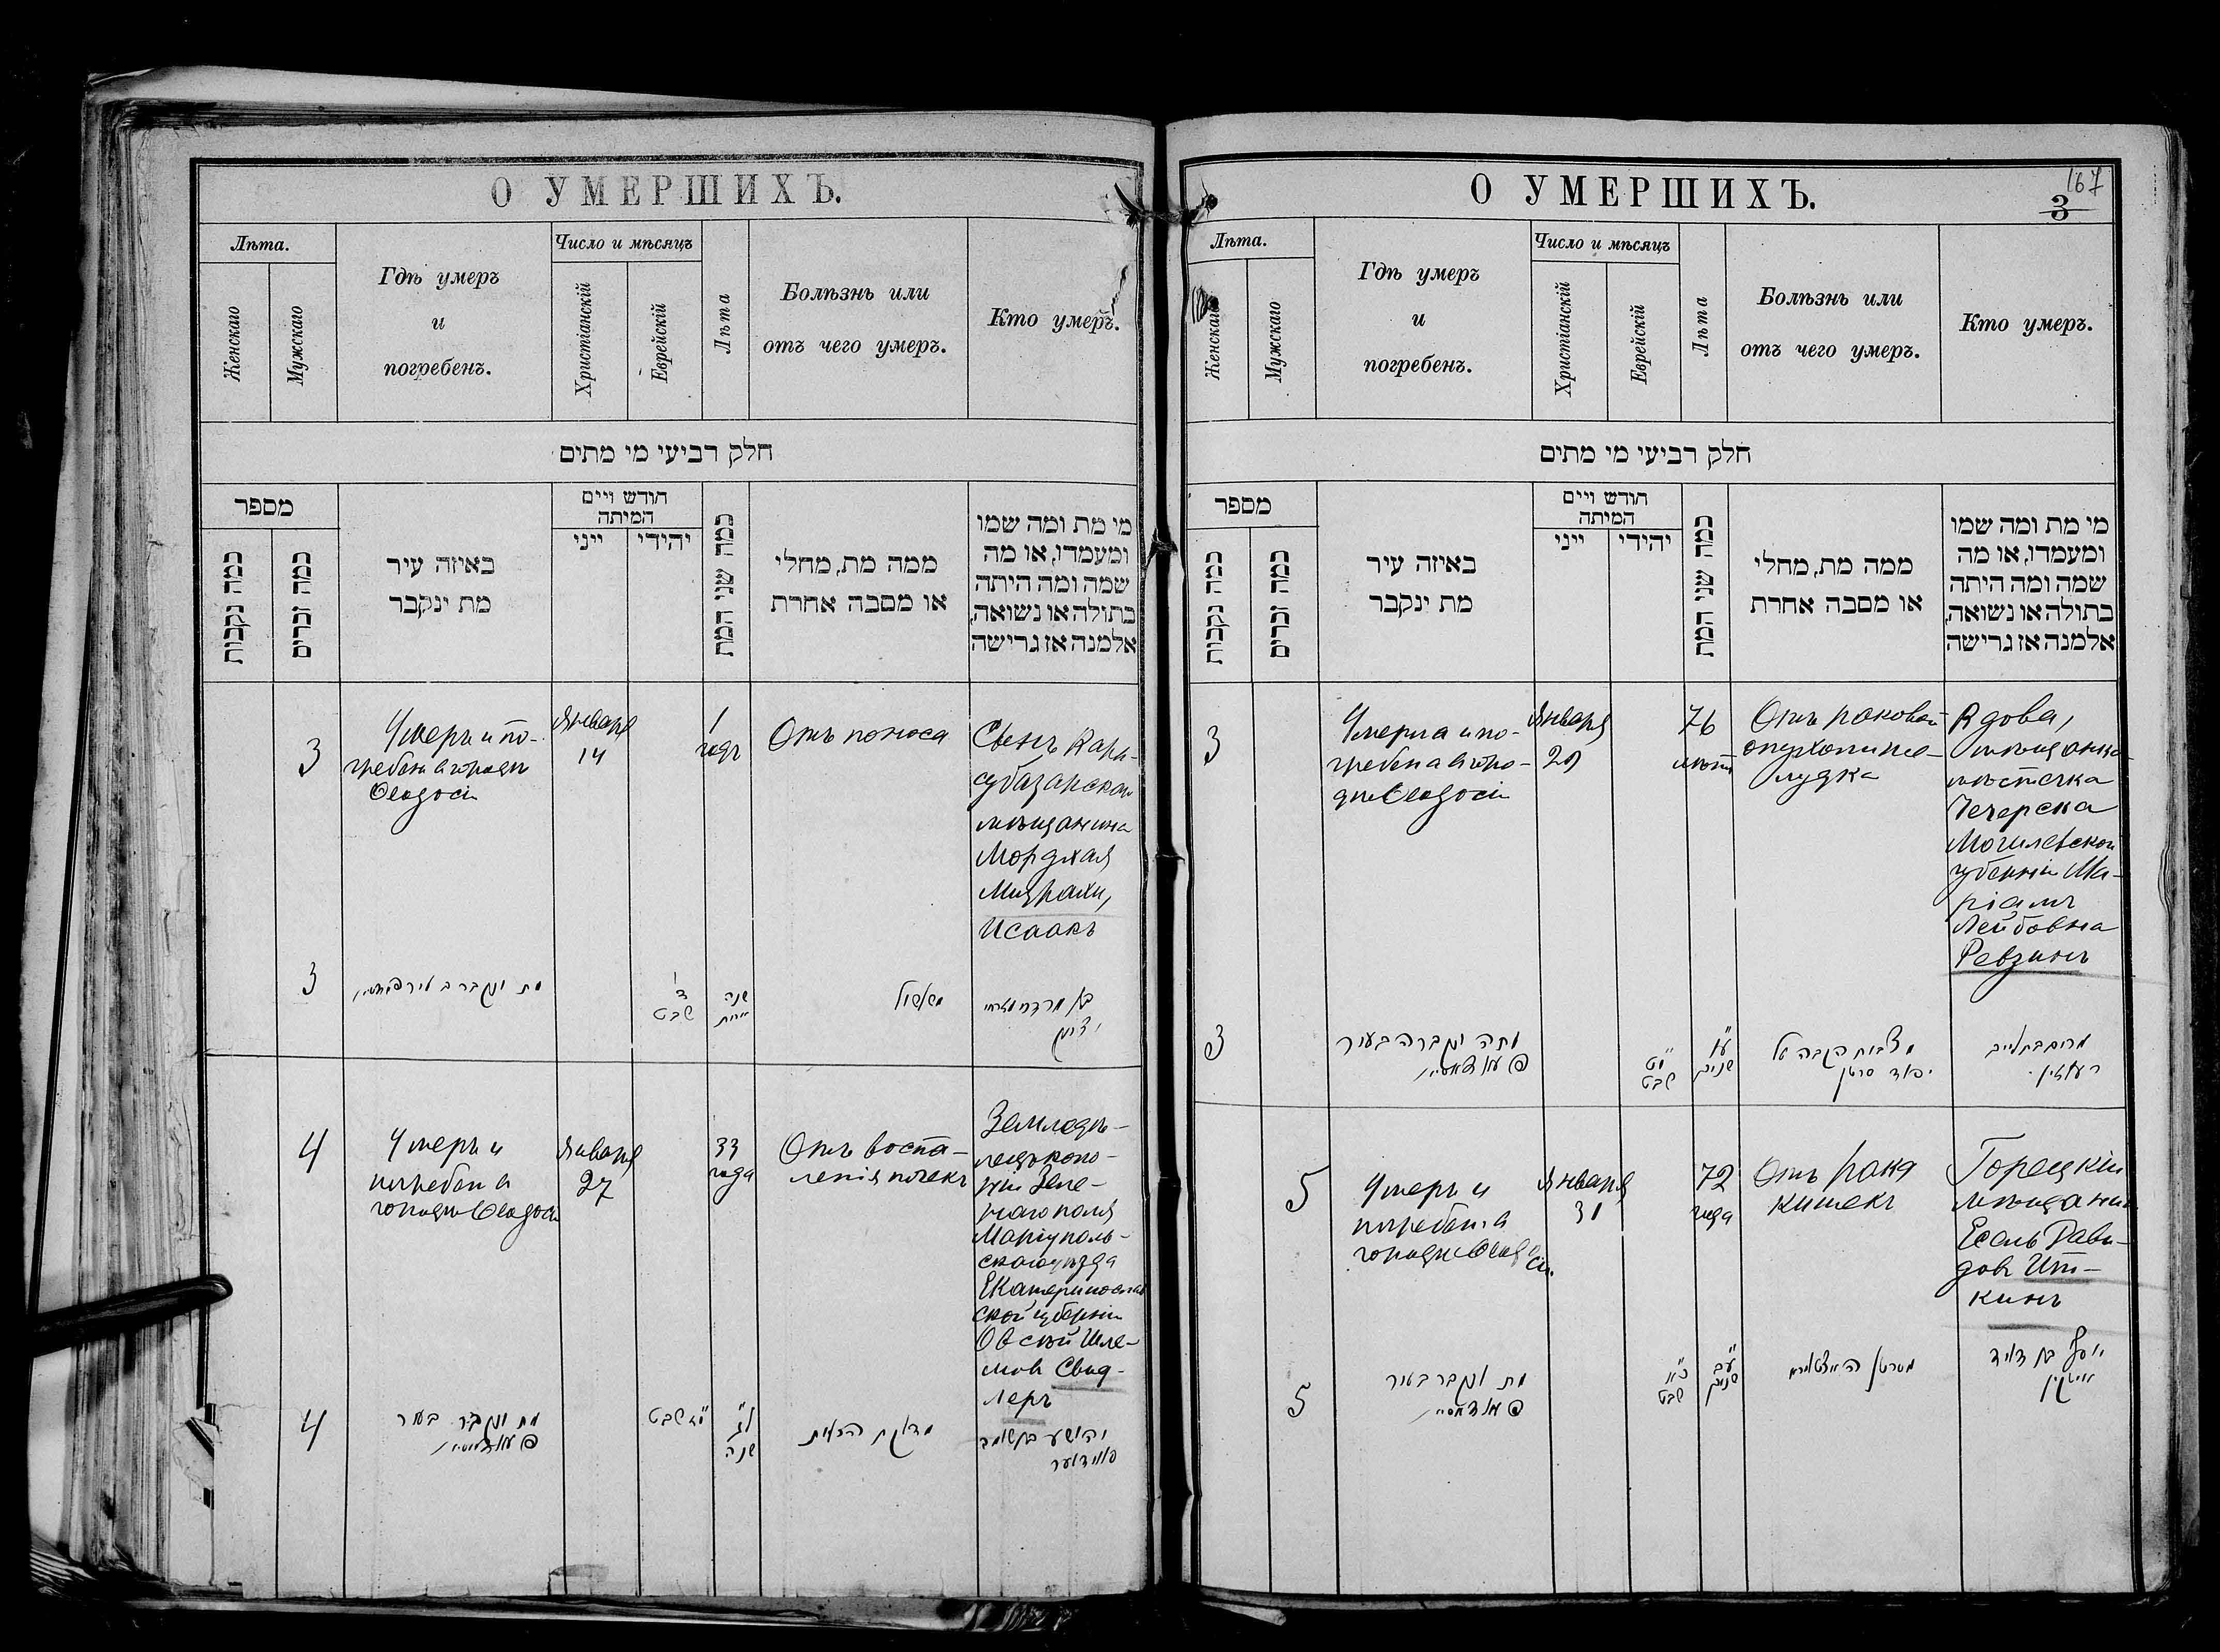 О УМЕРШИХЪ.
Лѣта.
Женскаго
Мужскаго
Гдѣ умеръ
и
погребенъ.
Число и мѣсяцъ
Христіанскій
Еврейскій
Лѣта
Болѣзнь или
отъ чего умеръ.
Кто умеръ.
חלק רביעי מי מתים
מספר
כמה נקבות
כמה זכרים
באיזה עיר
מת ינקבר
חודש ויים
המיתה
ייני
יהידי
כמה שני המת
ממה מת, מחלי
או מסבה אחרת
מי מת ומה שמו
ומעמדו, או מה
שמה ומה היתה
בתולה או נשואה,
אלמנה אז גרישה
3
Умеръ и по-
гребенъ в городѣ
Ѳеодосіи
Января
14
1
годъ
Отъ поноса
Сынъ Кара-
субазарскаго
мѣщанина
Мордхая
Мизрахи,
Исаакъ
3
שנה
שבט
שלשול
4
Умеръ и
погребенъ в
городѣ Ѳеодосіи
Января
27
33
года
Отъ воспа-
ленія почекъ
Земледѣ-
лецъ коло-
ніи Зеле-
наго поля
Маріуполь-
скаго уѣзда
Екатеринослав
ской губерніи
Овсѣй Шле-
мовъ Свид-
леръ
4
מת ונקבר בעיר
שבט
ל"ג
שנה
יהושע בן שלמה
О УМЕРШИХЪ.
167
3
Лѣта.
Женскаго
Мужскаго
Гдѣ умеръ
и
погребенъ.
Число и мѣсяцъ
Христіанскій
Еврейскій
Лѣта
Болѣзнь или
отъ чего умеръ.
Кто умеръ.
חלק רביעי מי מתים
מספר
כמה נקבות
כמה זכרים
באיזה עיר
מת ינקבר
חודש ויים
המיתה
ייני
יהידי
כמה שני המת
ממה מת, מחלי
או מסבה אחרת
מי מת ומה שמו
ומעמדו, או מה
שמה ומה היתה
בתולה או נשואה,
אלמנה אז גרישה
3
Умерла и по-
гребена в горо-
дѣ Ѳеодосіи
Января
29
76
лѣтъ
Отъ раковой
опухоли же-
лудка
Вдова,
мѣщанка
мѣстечка
Чечерска
Могилевской
губерніи Ма-
ріамъ
Лейбовна
Ревзинъ
3
מתה ונקברה בעיר
שבט
ע"ו
שנים
מרים בת לייב
רעוזין
5
Умеръ и
погребенъ в
городѣ Ѳеодо
сіи.
Января
31
72
года
Отъ рака
кишекъ
Горецкій
мѣщанинъ
Есель Дави-
довъ Ит-
кинъ
5
מת ונקבר בעיר
כ"א
שבט
ע"ב
שנים
יוסף בן דוד
איטקין